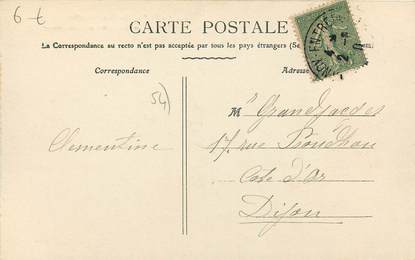 6 t
CARTE POSTALE
La Correspondance au recto n'est pas acceptée par tous les pays étrangers (Se
Correspondance
Adresse
54)
Clementine
Mr Grandjacques
17, rue Proudhon
Cote d'Or
Dijon